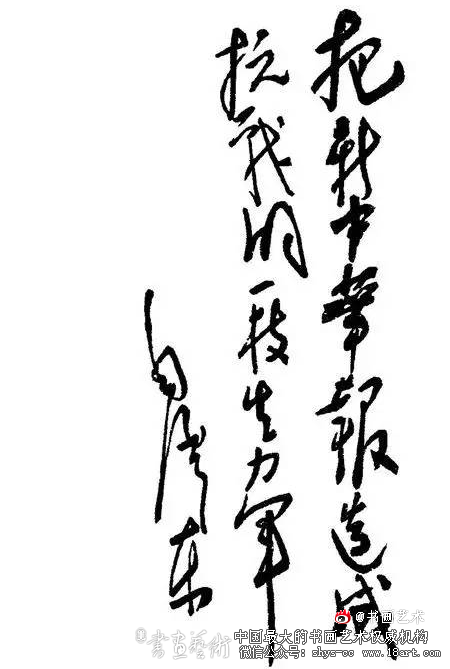 把新中華報造成
抗戰的一枝生力軍
毛澤东
@书画艺术
©書畫藝術
中国最大的书画艺术权威机构
微信公众号：shys-cc www.18art.com